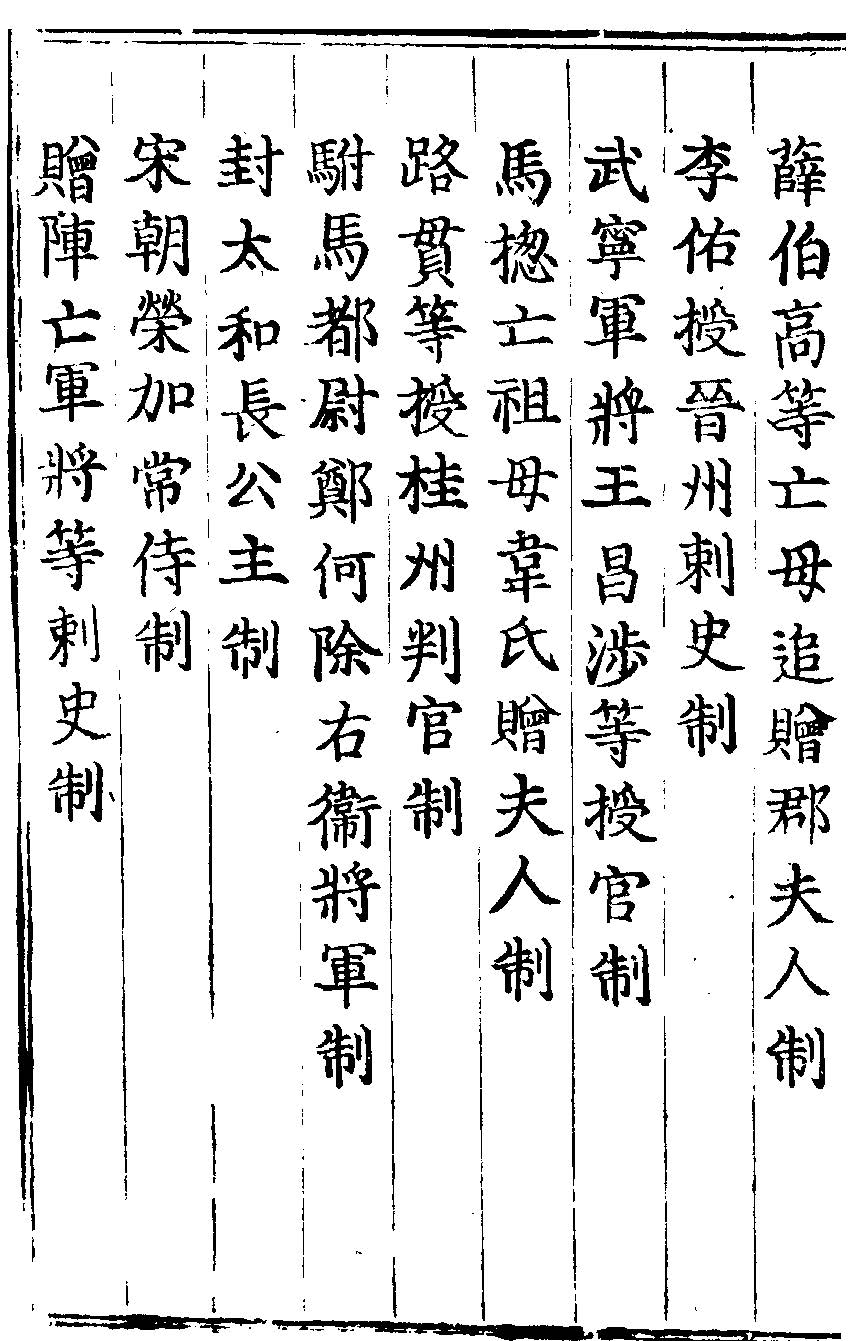 薛伯高等亡母追贈郡夫人制
李佑授晉州刺史制
武寧軍將王昌涉等授官制
馬揔亡祖母韋氏贈夫人制
路貫等授桂州判官制
駙馬都尉鄭何除右衞將軍制
封太和長公主制
宋朝榮加常侍制
贈陣亡軍將等刺史制